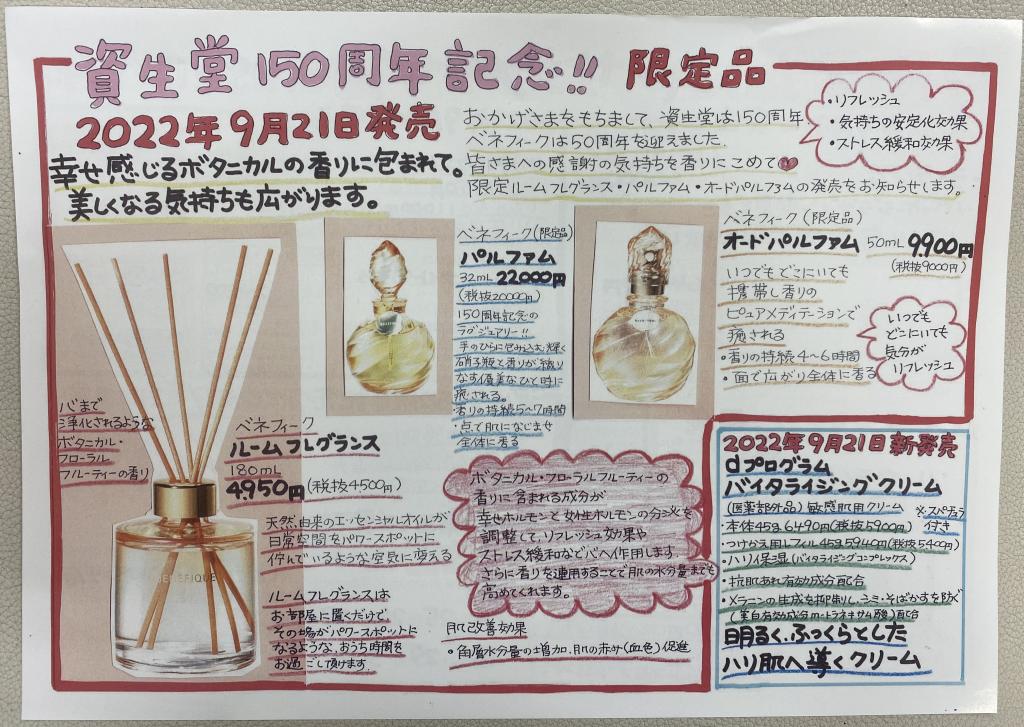 資生堂150周年記念!! 限定品
2022年9月21日発売
幸せ感じるボタニカルの香りに包まれて。
美しくなる気持ちも広がります。
おかげさまをもちまして、資生堂は150周年
ベネフィークは50周年を迎えました。
皆さまへの感謝の気持ちを香りにこめて
限定ルームフレグランス・パルファム・オードパルファムの発売をお知らせします。
・リフレッシュ
・気持ちの安定化効果
・ストレス緩和効果
ベネフィーク(限定品)
パルファム
32mL 22,000円
(税抜20000円)
150周年記念の
ラグジュアリー!!
手のひらに包み込む輝く
硝子瓶と香りが織り
なす優美なひと時に
癒される。
・香りの持続5〜7時間
・点で肌になじませ
全体に香る
ベネフィーク(限定品)
オードパルファム 50mL 9,900円
(税抜9000円)
いつでもどこにいても
携帯し香りの
ピュアメディテーションで
癒される
・香りの持続4〜6時間
・面で広がり全体に香る
いつでも
どこにいても
気分が
リフレッシュ
心まで
浄化されるような
ボタニカル・
フローラル
フルーティーの香り
BENEFIQUE
ベネフィーク
ルームフレグランス
180mL
4,950円(税抜4500円)
天然由来のエッセンシャルオイルが
日常空間をパワースポットに
佇んでいるような空気に変える
ルームフレグランスは
お部屋に置くだけで、
その場がパワースポットに
なるような、おうち時間を
お過ごし頂けます。
ボタニカル・フローラルフルーティーの
香りに含まれる成分が
幸せホルモンと女性ホルモンの分泌を
調整して、リフレッシュ効果や
ストレス緩和など心へ作用します。
さらに香りを連用することで肌の水分量までも
高めてくれます。
肌改善効果
・角層水分量の増加、肌の赤み(血色)促進
2022年9月21日新発売
dプログラム
バイタライジングクリーム
(医薬部外品)敏感肌用クリーム ※スパチュラ
付き
・本体45g 6,490円(税抜5900円)
・つけかえ用レフィル45g5,940円(税抜5400円)
・ハリ保湿(バイタライジングコンプレックス)
・抗肌あれ有効成分配合
・メラニンの生成を抑制し、シミ・そばかすを防ぐ
(美白有効成分m-トラネキサム酸)配合
明るく、ふっくらとした
ハリ肌へ導くクリーム